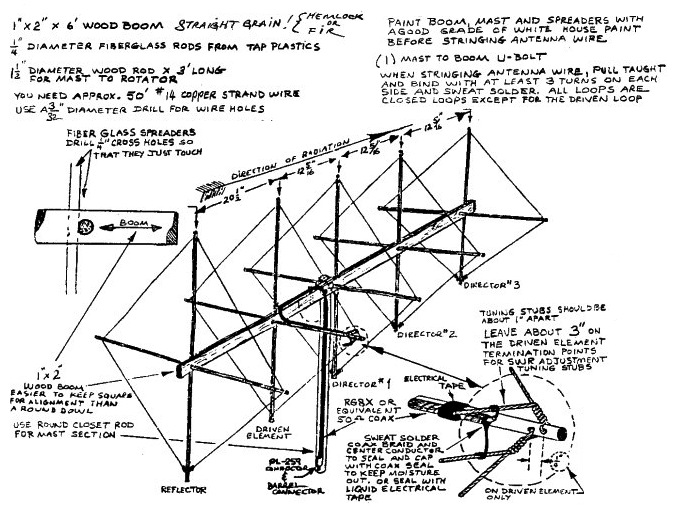 1"x2" x 6' WOOD BOOM STRAIGHT GRAIN! {HEMLOCK OR FIR
1/4" DIAMETER FIBERGLASS RODS FROM TAP PLASTICS
1 1/2" DIAMETER WOOD ROD X 3' LONG
FOR MAST TO ROTATOR
YOU NEED APPROX. 50' #14 COPPER STRAND WIRE
USE A 3/32" DIAMETER DRILL FOR WIRE HOLES
PAINT BOOM, MAST AND SPREADERS WITH
A GOOD GRADE OF WHITE HOUSE PAINT
BEFORE STRINGING ANTENNA WIRE
(1) MAST TO BOOM U-BOLT
WHEN STRINGING ANTENNA WIRE, PULL TAUGHT
AND BIND WITH AT LEAST 3 TURNS ON EACH
SIDE AND SWEAT SOLDER. ALL LOOPS ARE
CLOSED LOOPS EXCEPT FOR THE DRIVEN LOOP
FIBER GLASS SPREADERS
DRILL 1/4" CROSS HOLES SO
THAT THEY JUST TOUCH
BOOM
DIRECTION OF RADIATION
20 1/2"
12 5/16"
12 5/16"
12 5/16"
DIRECTOR #3
DIRECTOR #2
DIRECTOR #1
DRIVEN
ELEMENT
REFLECTOR
1"x2"
WOOD BOOM
EASIER TO KEEP SQUARE
FOR ALIGNMENT THAN
A ROUND DOWL
USE ROUND CLOSET ROD
FOR MAST SECTION
PL-259
CONNECTOR
&
BARREL
CONNECTOR
TUNING STUBS SHOULD BE
ABOUT 1" APART
LEAVE ABOUT 3" ON
THE DRIVEN ELEMENT
TERMINATION POINTS
FOR SWR ADJUSTMENT
TUNING STUBS
ELECTRICAL
TAPE
RG8X OR
EQUIVALENT
50Ω COAX
SWEAT SOLDER
COAX BRAID AND
CENTER CONDUCTOR
TO SEAL AND CAP
WITH COAX SEAL
TO KEEP MOISTURE
OUT. OR SEAL WITH
LIQUID ELECTRICAL
TAPE
ON DRIVEN ELEMENT
ONLY